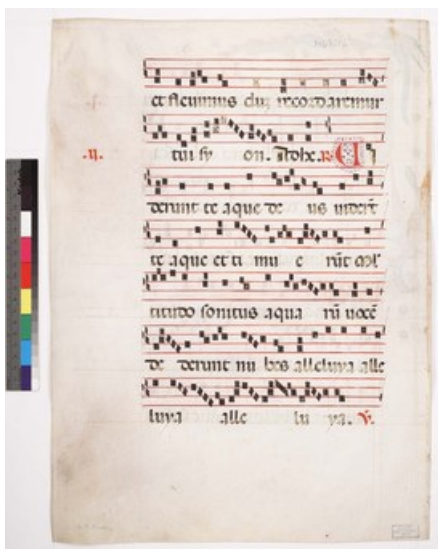 et flevimus dum recordaremur
.ii. tui sy on. V
derunt te aque de us viderūt
te aque et ti mu e rūt mul
titudo sonitus aqua rū vocē
de derunt nu bes alleluya alle
luya alle lu ya. V.